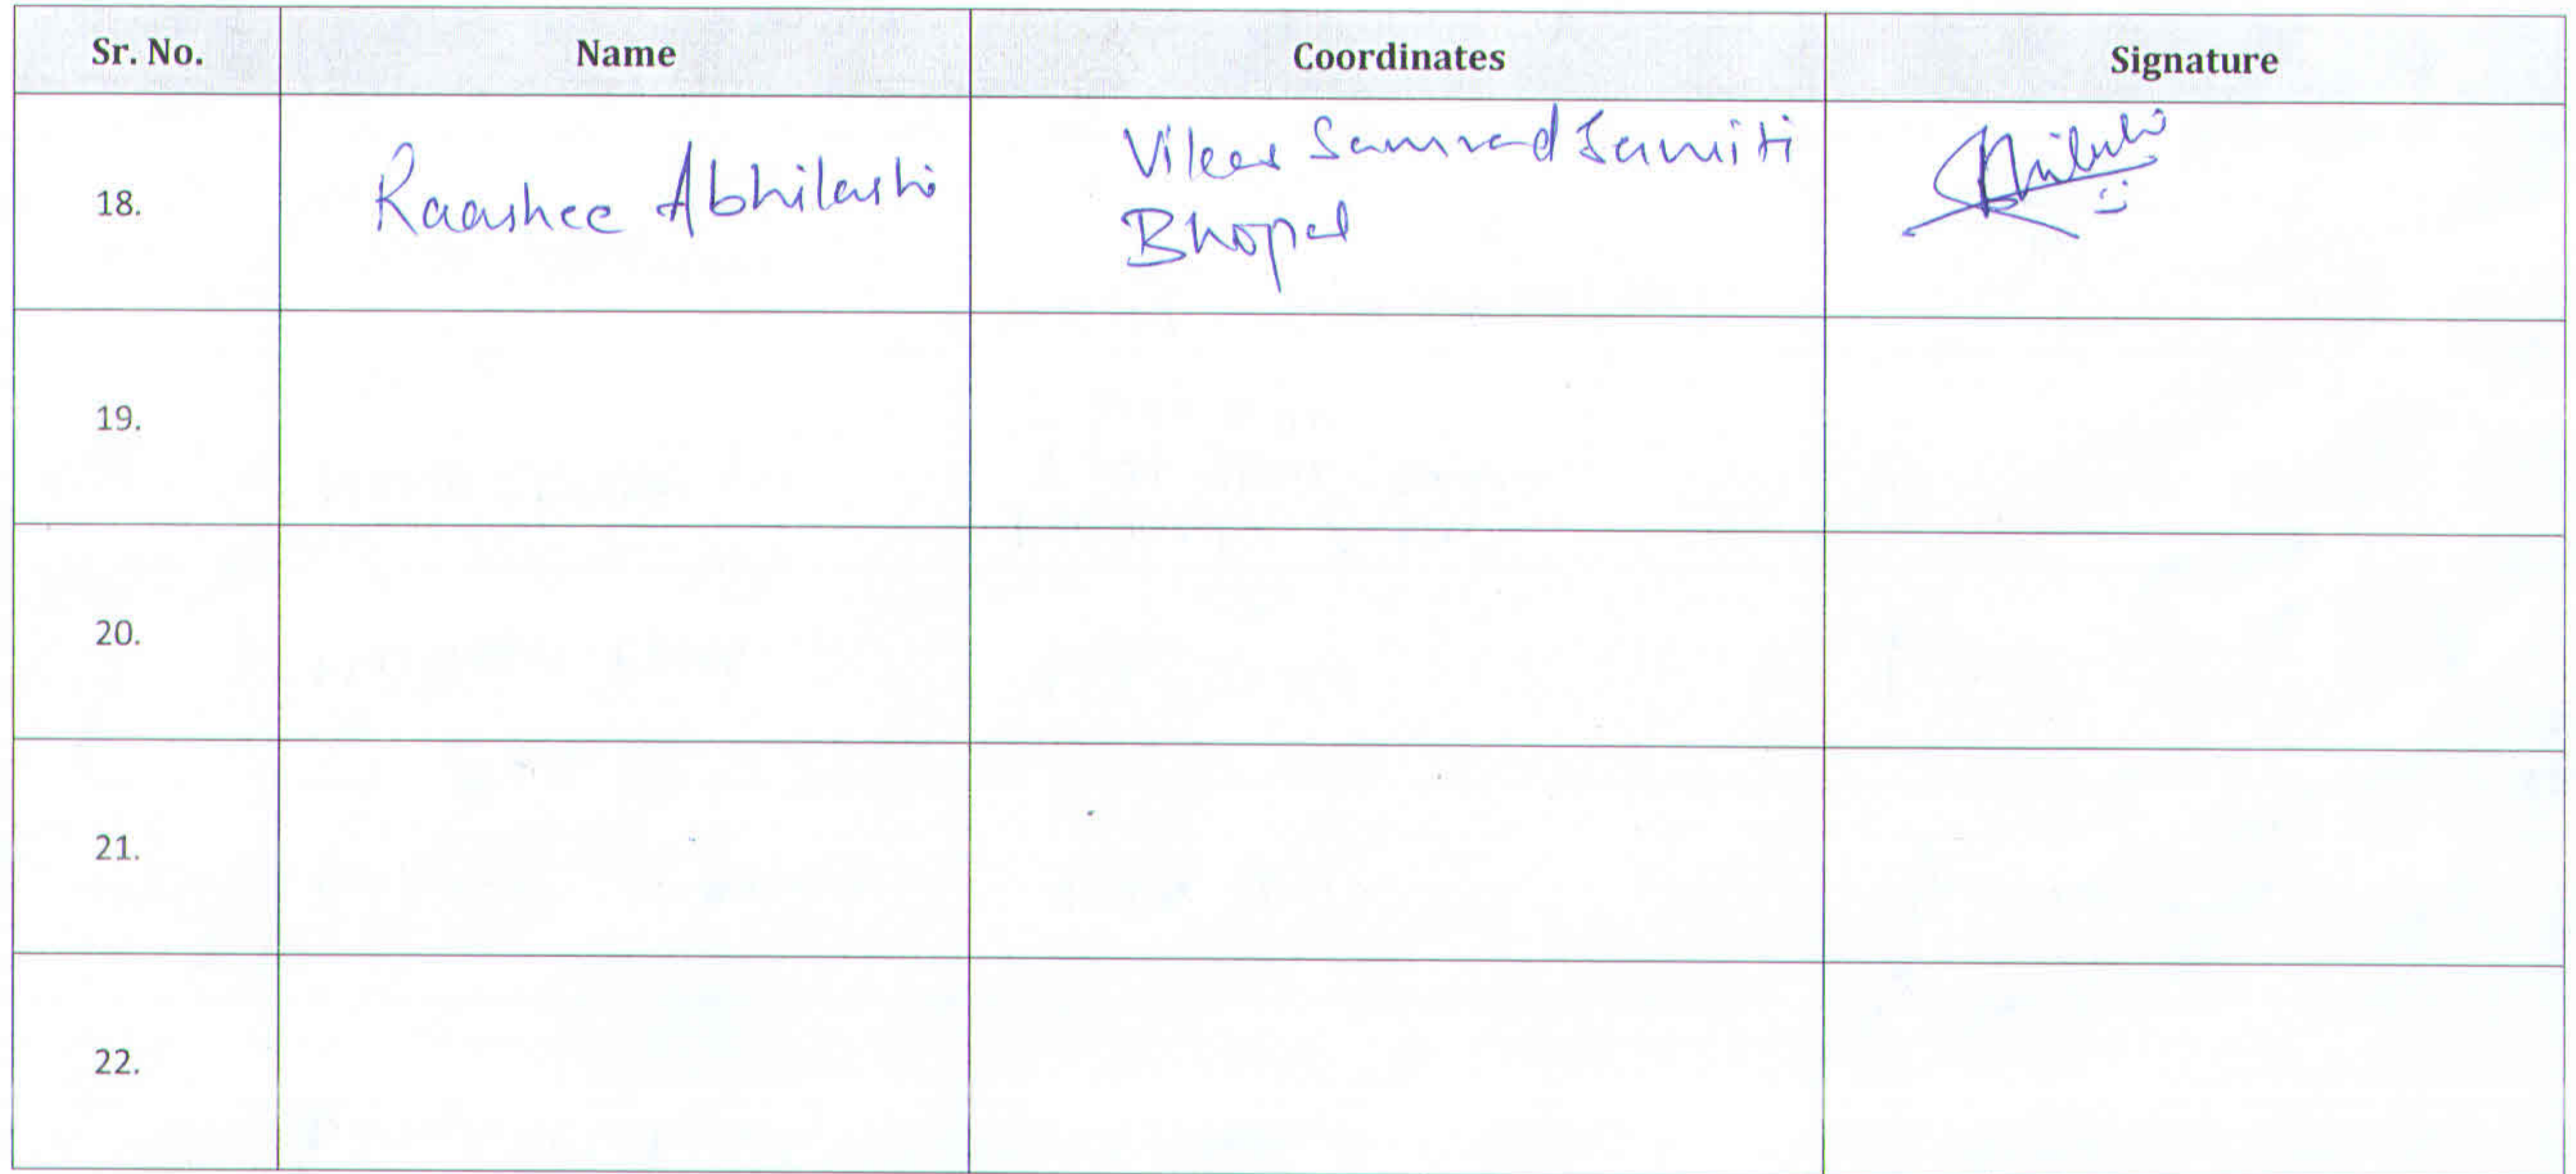 Sr. No. Name Coordinates Signature
18. Raashee Abhilashi Vikas Samvad Samiti
Bhopal
19.
20.
21.
22.